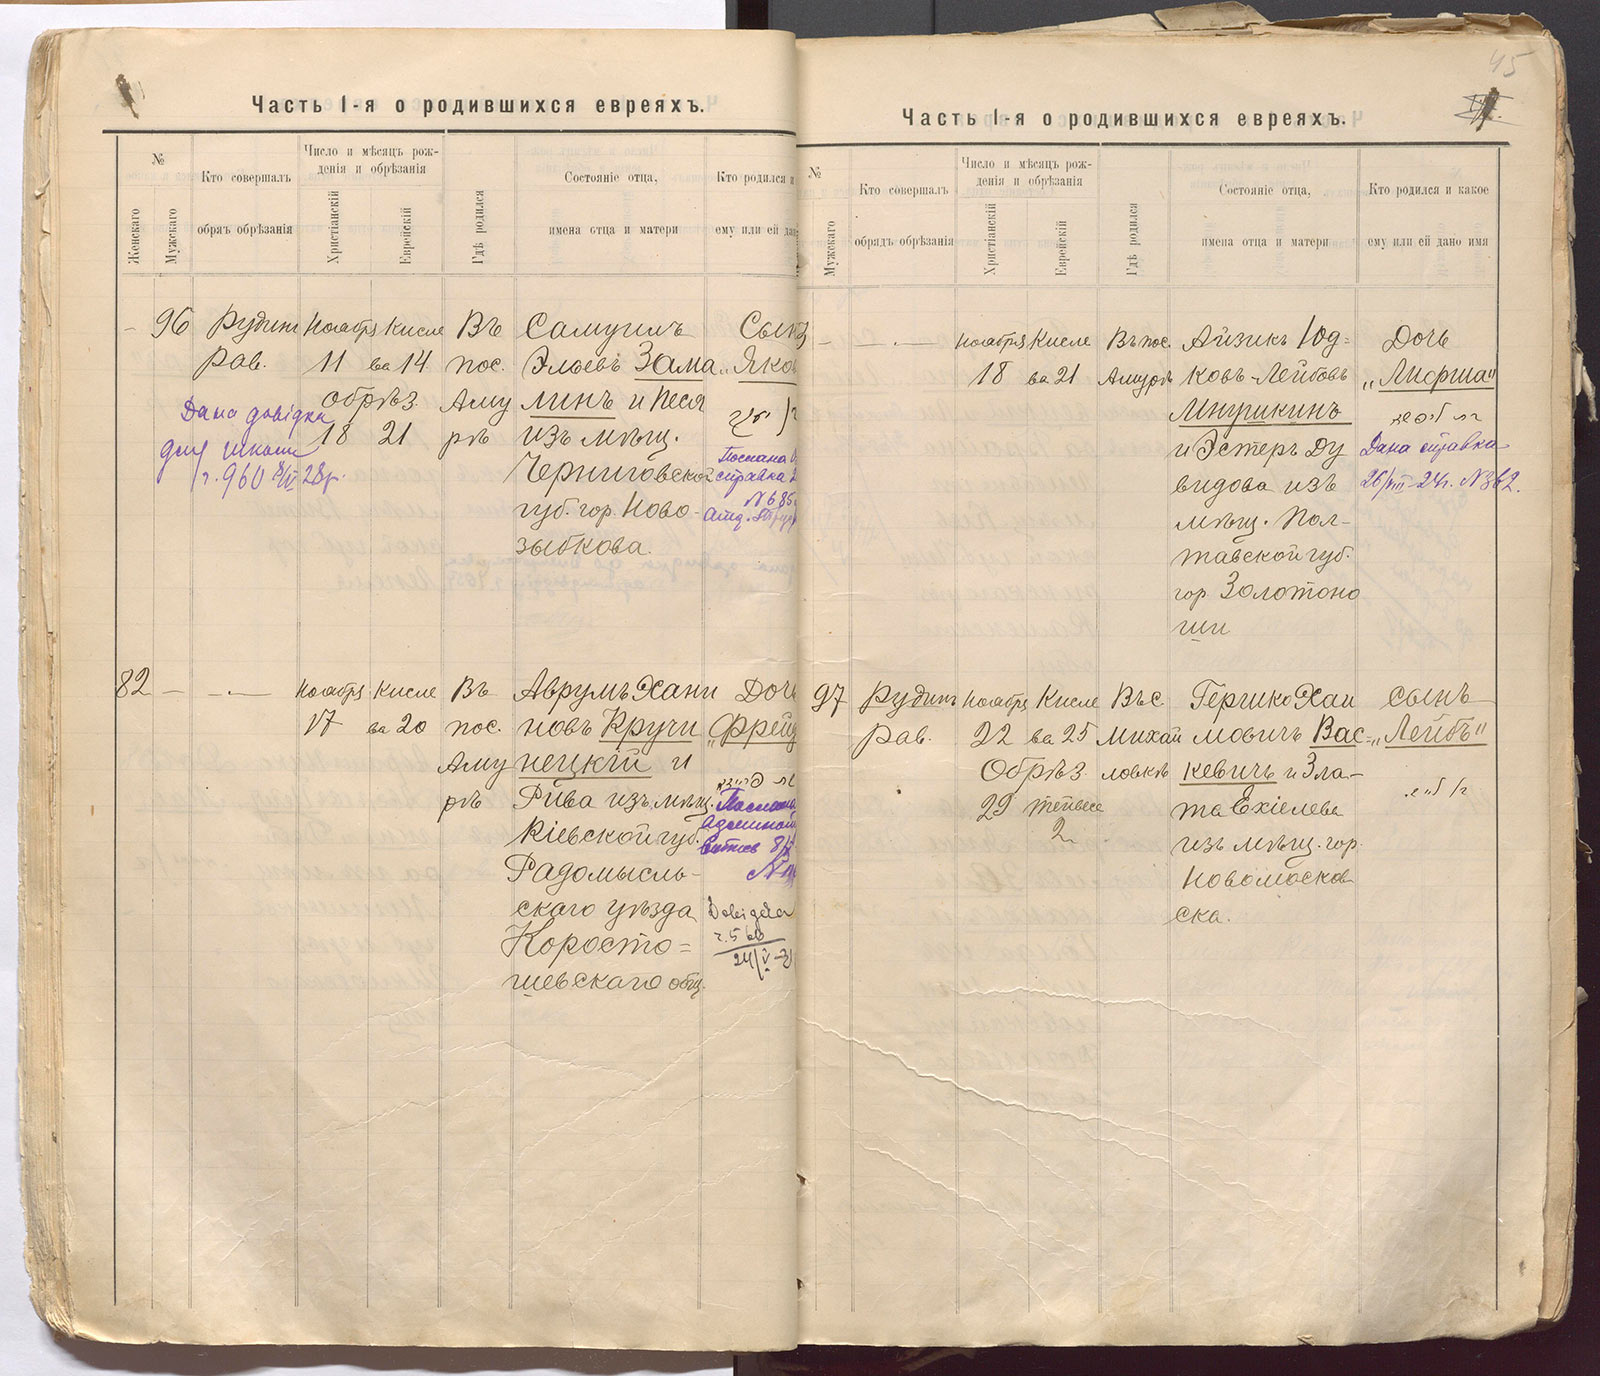 Часть I-я о родившихся евреяхъ.
№
Женскаго
Мужскаго
Кто совершалъ
обрядъ обрѣзанія
Число и мѣсяцъ рож-
денія и обрѣзанія
Христіанскій
Еврейскій
Гдѣ родился
Состояніе отца,
имена отца и матери
Кто родился и
ему или ей дан
96
Рудинъ
Рав.
Ноабря
11
Обрѣз.
18
Кисле
ва 14
21
Въ
пос.
Аму
рѣ
Самуилъ
Эльевъ Зама
линъ и Песя
изъ мѣщ.
Черниговской
губ. гор. Ново-
зыбкова.
Сынъ
„Яков
Дана довідка
для школи
ч. 960 28р.
Послана
справка
№ 685
82
Ноабря
17
Кисле
ва 20
Въ
пос.
Аму
рѣ
Аврумъ Хаки
новъ Кручи
нецкій и
Рива изъ мѣщ.
Кіевской губ.
Радомысль-
скаго уѣзда
Коросто=
шевскаго общ.
Дочь
„Фрейд
Послана
Довідка
45
Часть I-я о родившихся евреяхъ.
№
Мужскаго
Кто совершалъ
обрядъ обрѣзанія
Число и мѣсяцъ рож-
денія и обрѣзанія
Христіанскій
Еврейскій
Гдѣ родился
Состояніе отца,
имена отца и матери
Кто родился и какое
ему или ей дано имя
ноабря
18
Кисле
ва 21
Въ пос.
Амурѣ
Айзикъ Юд=
ковъ-Лейбовъ
Мнушкинъ
и Эстеръ Ду
видова изъ
мѣщ. Пол-
тавской губ.
гор Золотоно
ши
Дочь
„Лифша"
Дана справка
26/VIII-24г. №362.
97
Рудинъ
Рав.
Ноабря
22
Обрѣз.
29
Кисле
ва 25
тейвеса
2
Въ с
Михай
ловкѣ
Гершко Хаи
мовичъ Вас=
кевичъ и Зла-
та Ехіелева
изъ мѣщ. гор.
Новомосков
ска.
сынъ
„Лейбъ"